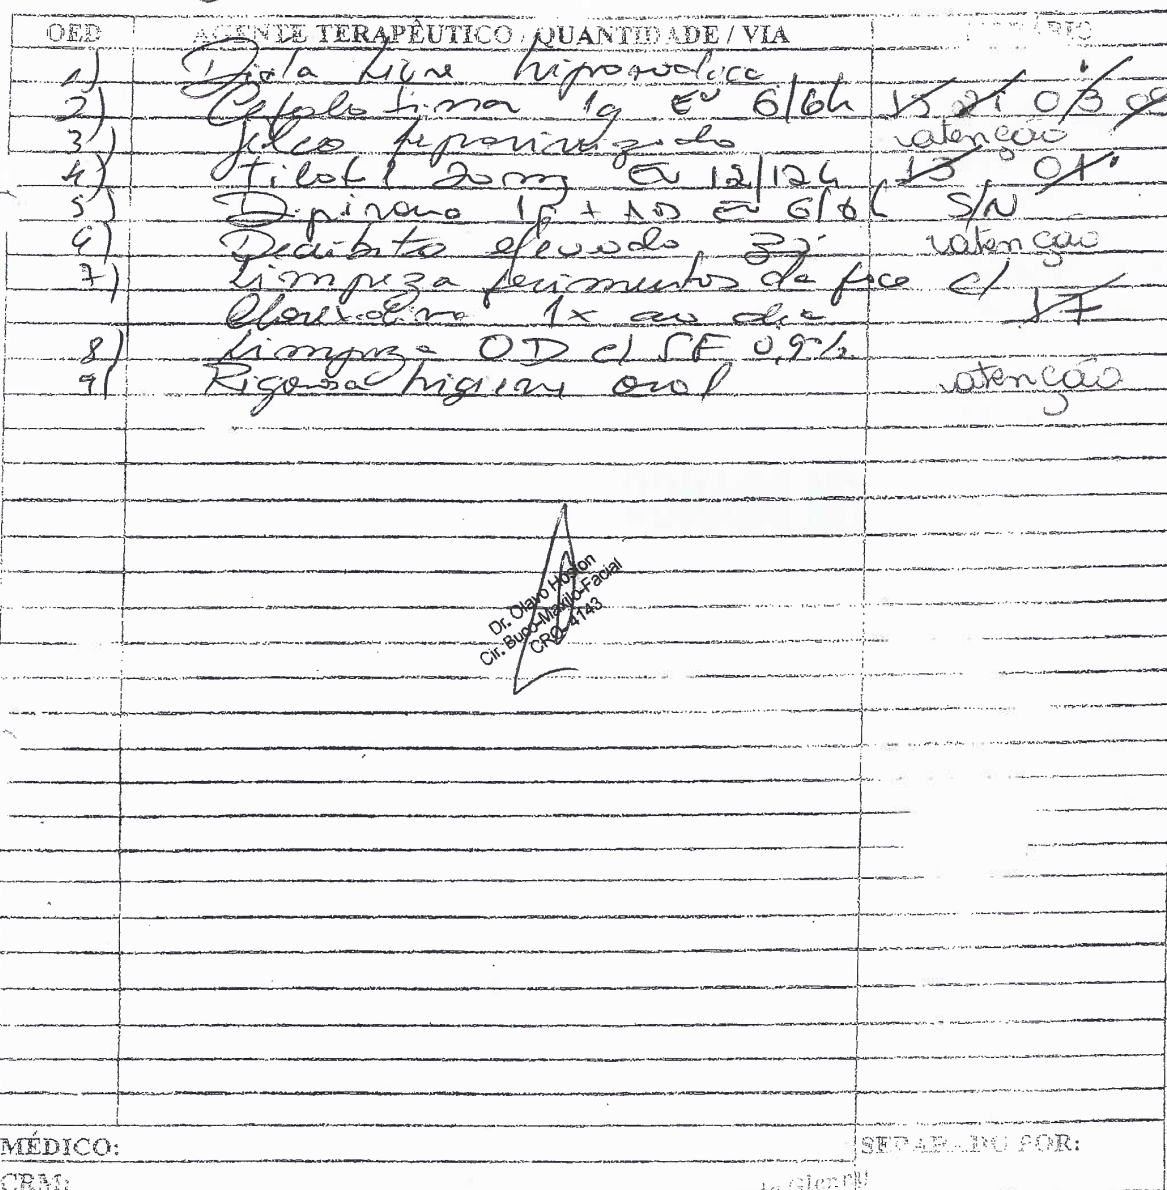 OED AGENTE TERAPÊUTICO / QUANTIDADE / VIA
1) Dieta livre hipossódica
2) Cefalotina 1g EV 6/6h 15 21 03 09
3) Jelco heparinizado atenção
4) Tilatil 20mg EV 12/12h 13 01
5) Dipirona 1g + AD EV 6/6h S/N
6) Decúbito elevado 30° atenção
7) Limpeza ferimentos da face c/
Clorexidina 1x ao dia 17
8) Limpeza OD c/ SF 0,9%
9) Rigorosa higiene oral atenção
Dr. Olavo Hoston
Cir. Buco-Maxilo-Facial
CRO-4143
MÉDICO: SEPARADO POR:
CRM: